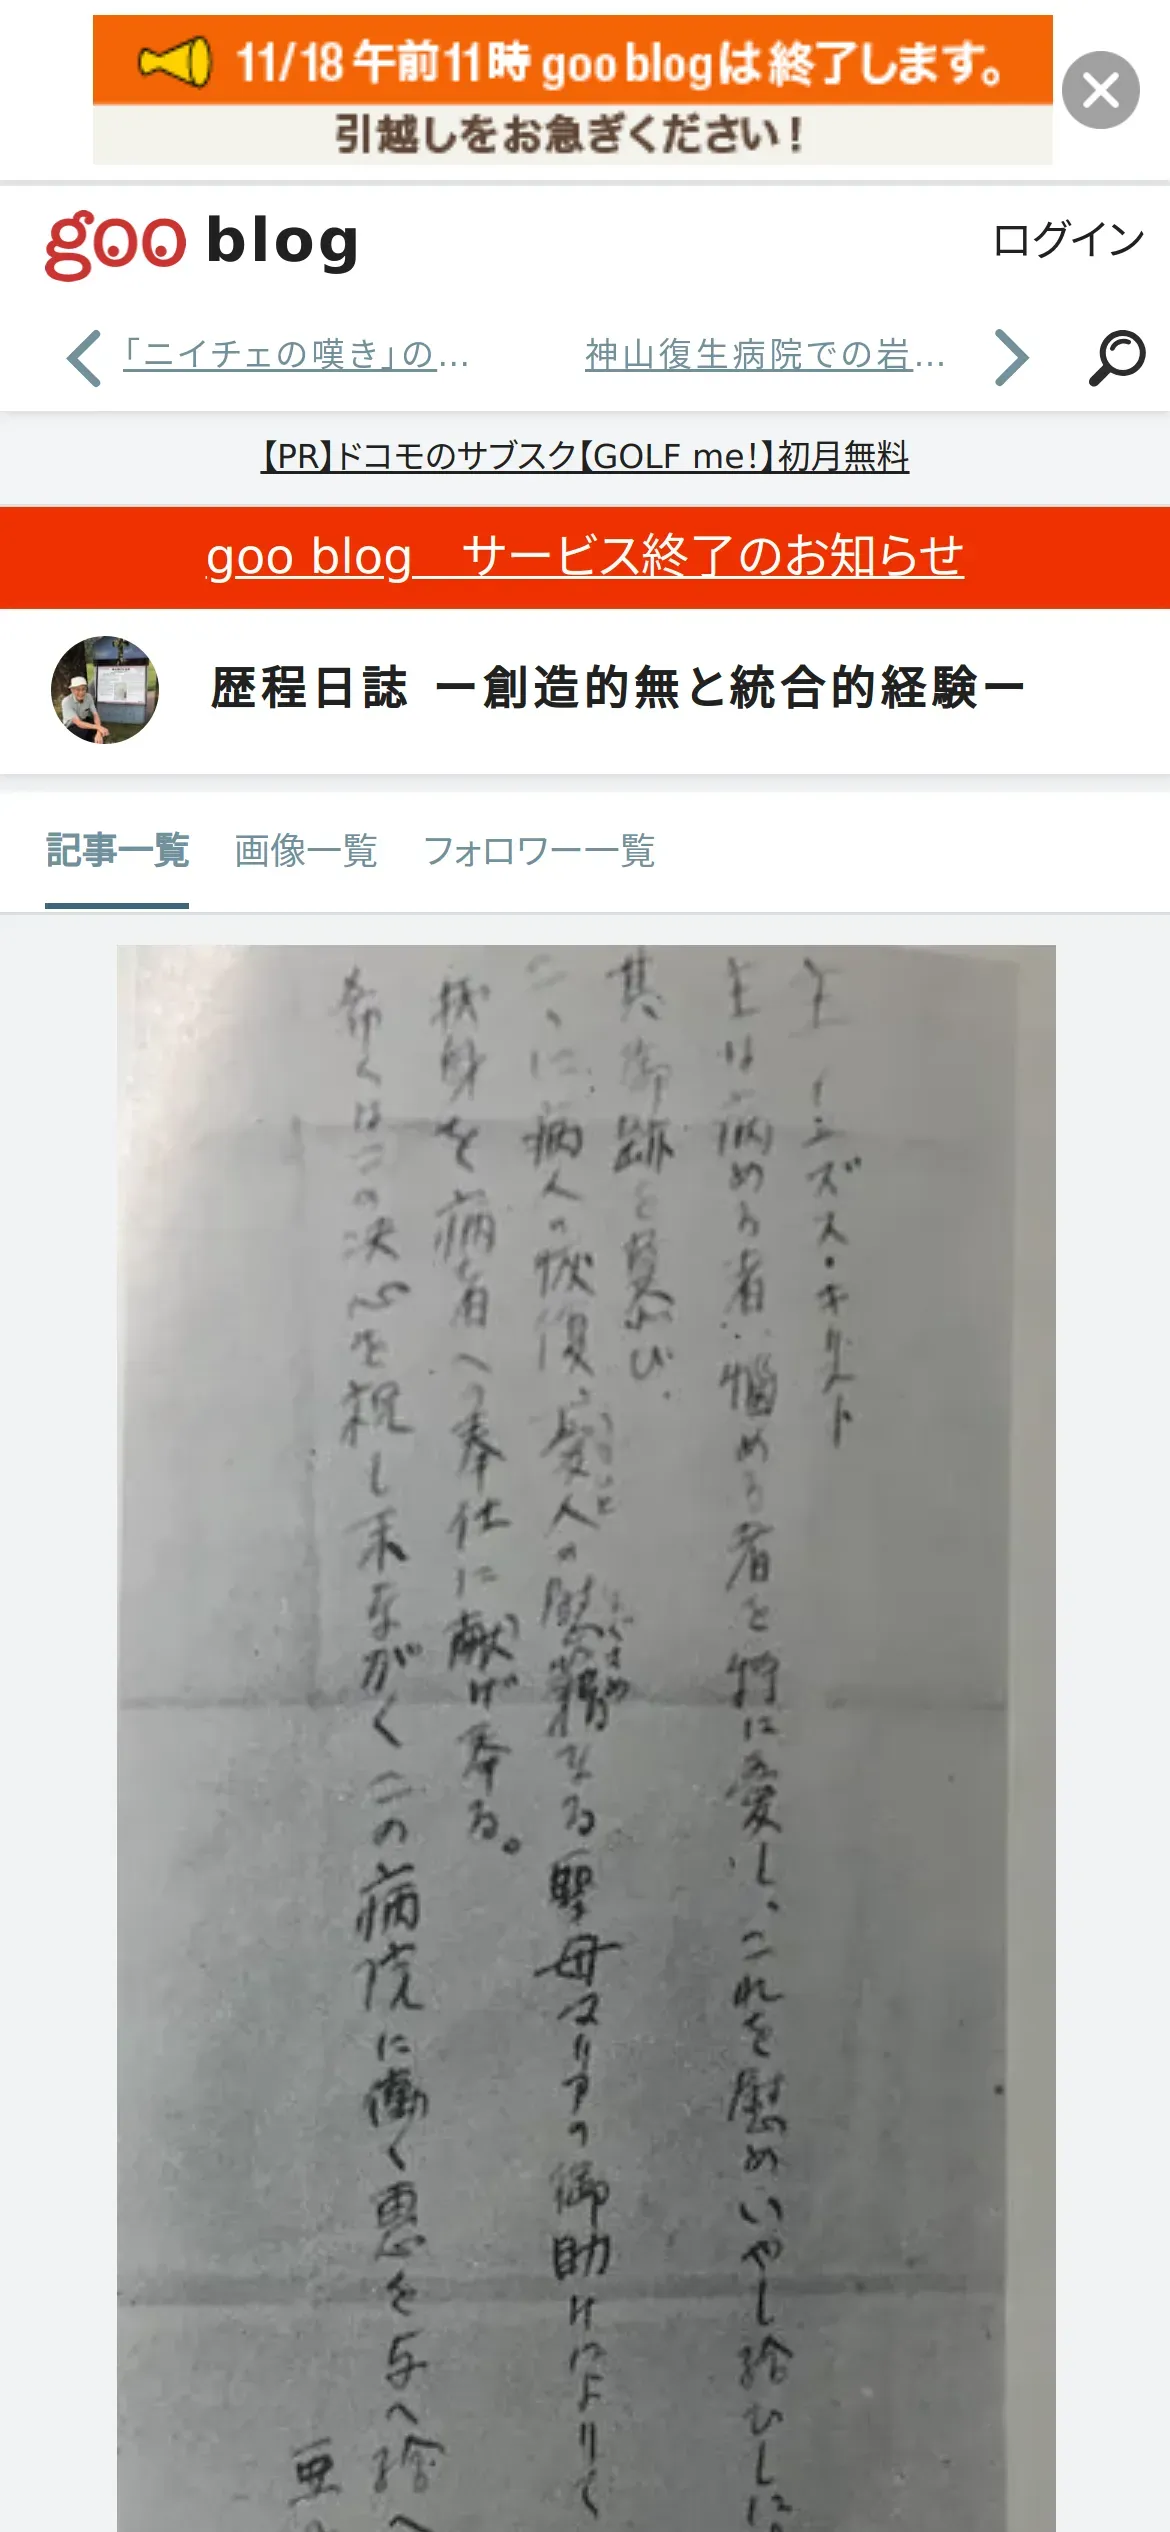 11/18 午前11時 goo blogは終了します。
引越しをお急ぎください！
goo blog
ログイン
「ニイチェの嘆き」の…
神山復生病院での岩…
【PR】ドコモのサブスク【GOLF me!】初月無料
goo blog　サービス終了のお知らせ
歴程日誌 ー創造的無と統合的経験ー
記事一覧
画像一覧
フォロワー一覧
主 イエズス・キリスト
主は病める者、悩める者を特に愛し、これを慰めいやし給ひしに
其御跡を慕ひ、
こゝに病人の恢復、憂人の慰藉なる聖母マリアの御助けによりて
我身を病者への奉仕に献げ奉る。
希くはこの決心を祝し末ながくこの病院に働く恵を与へ給へ